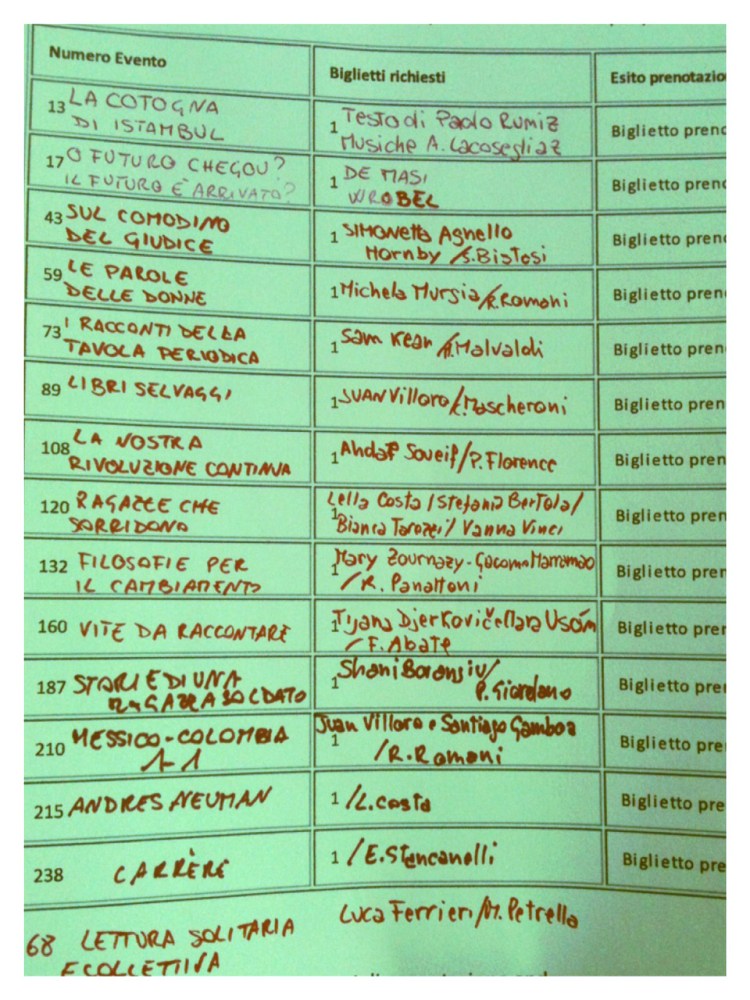 Numero Evento
Biglietti richiesti
Esito prenotazio
13 LA COTOGNA
DI ISTAMBUL
1 Testo di Paolo Rumiz
Musiche A. Lacosegliaz
Biglietto preno
17 O FUTURO CHEGOU?
IL FUTURO È ARRIVATO?
1 DE MASI
WROBEL
Biglietto preno
43 SUL COMODINO
DEL GIUDICE
1 SIMONETTA Agnello
Hornby /S.Bistosi
Biglietto preno
59 LE PAROLE
DELLE DONNE
1 Michela Murgia/R.Romani
Biglietto pren
73 I RACCONTI DELLA
TAVOLA PERIODICA
1 Sam Kean /M.Malvaldi
Biglietto pren
89 LIBRI SELVAGGI
1 JUAN Villoro/L.Mascheroni
Biglietto pren
108 LA NOSTRA
RIVOLUZIONE CONTINUA
1 Ahdaf Soueif/P.Florence
Biglietto pren
120 RAGAZZE CHE
SORRIDONO
Lella Costa /Stefania Bertola/
1 Bianca Tarozzi/ Vanna Vinci
Biglietto pren
132 FILOSOFIE PER
IL CAMBIAMENTO
1 Mary Zournazy-Giacomo Marramao
/R. Panattoni
Biglietto pren
160 VITE DA RACCONTARE
1 Tijana Djerkovič e Clara Usón
/F.Abate
Biglietto pren
187 STORIE DI UNA
RAGAZZA SOLDATO
1 Shani Boianjiu/
P.Giordano
Biglietto pre
210 MESSICO-COLOMBIA
1-1
Juan Villoro e Santiago Gamboa
1 /R.Romani
Biglietto pre
215 ANDRES NEUMAN
1 /L.Costa
Biglietto pre
238 CARRÈRE
1 /E.Stancanelli
Biglietto pre
68 LETTURA SOLITARIA
E COLLETTIVA
Luca Ferrieri/M.Petrella